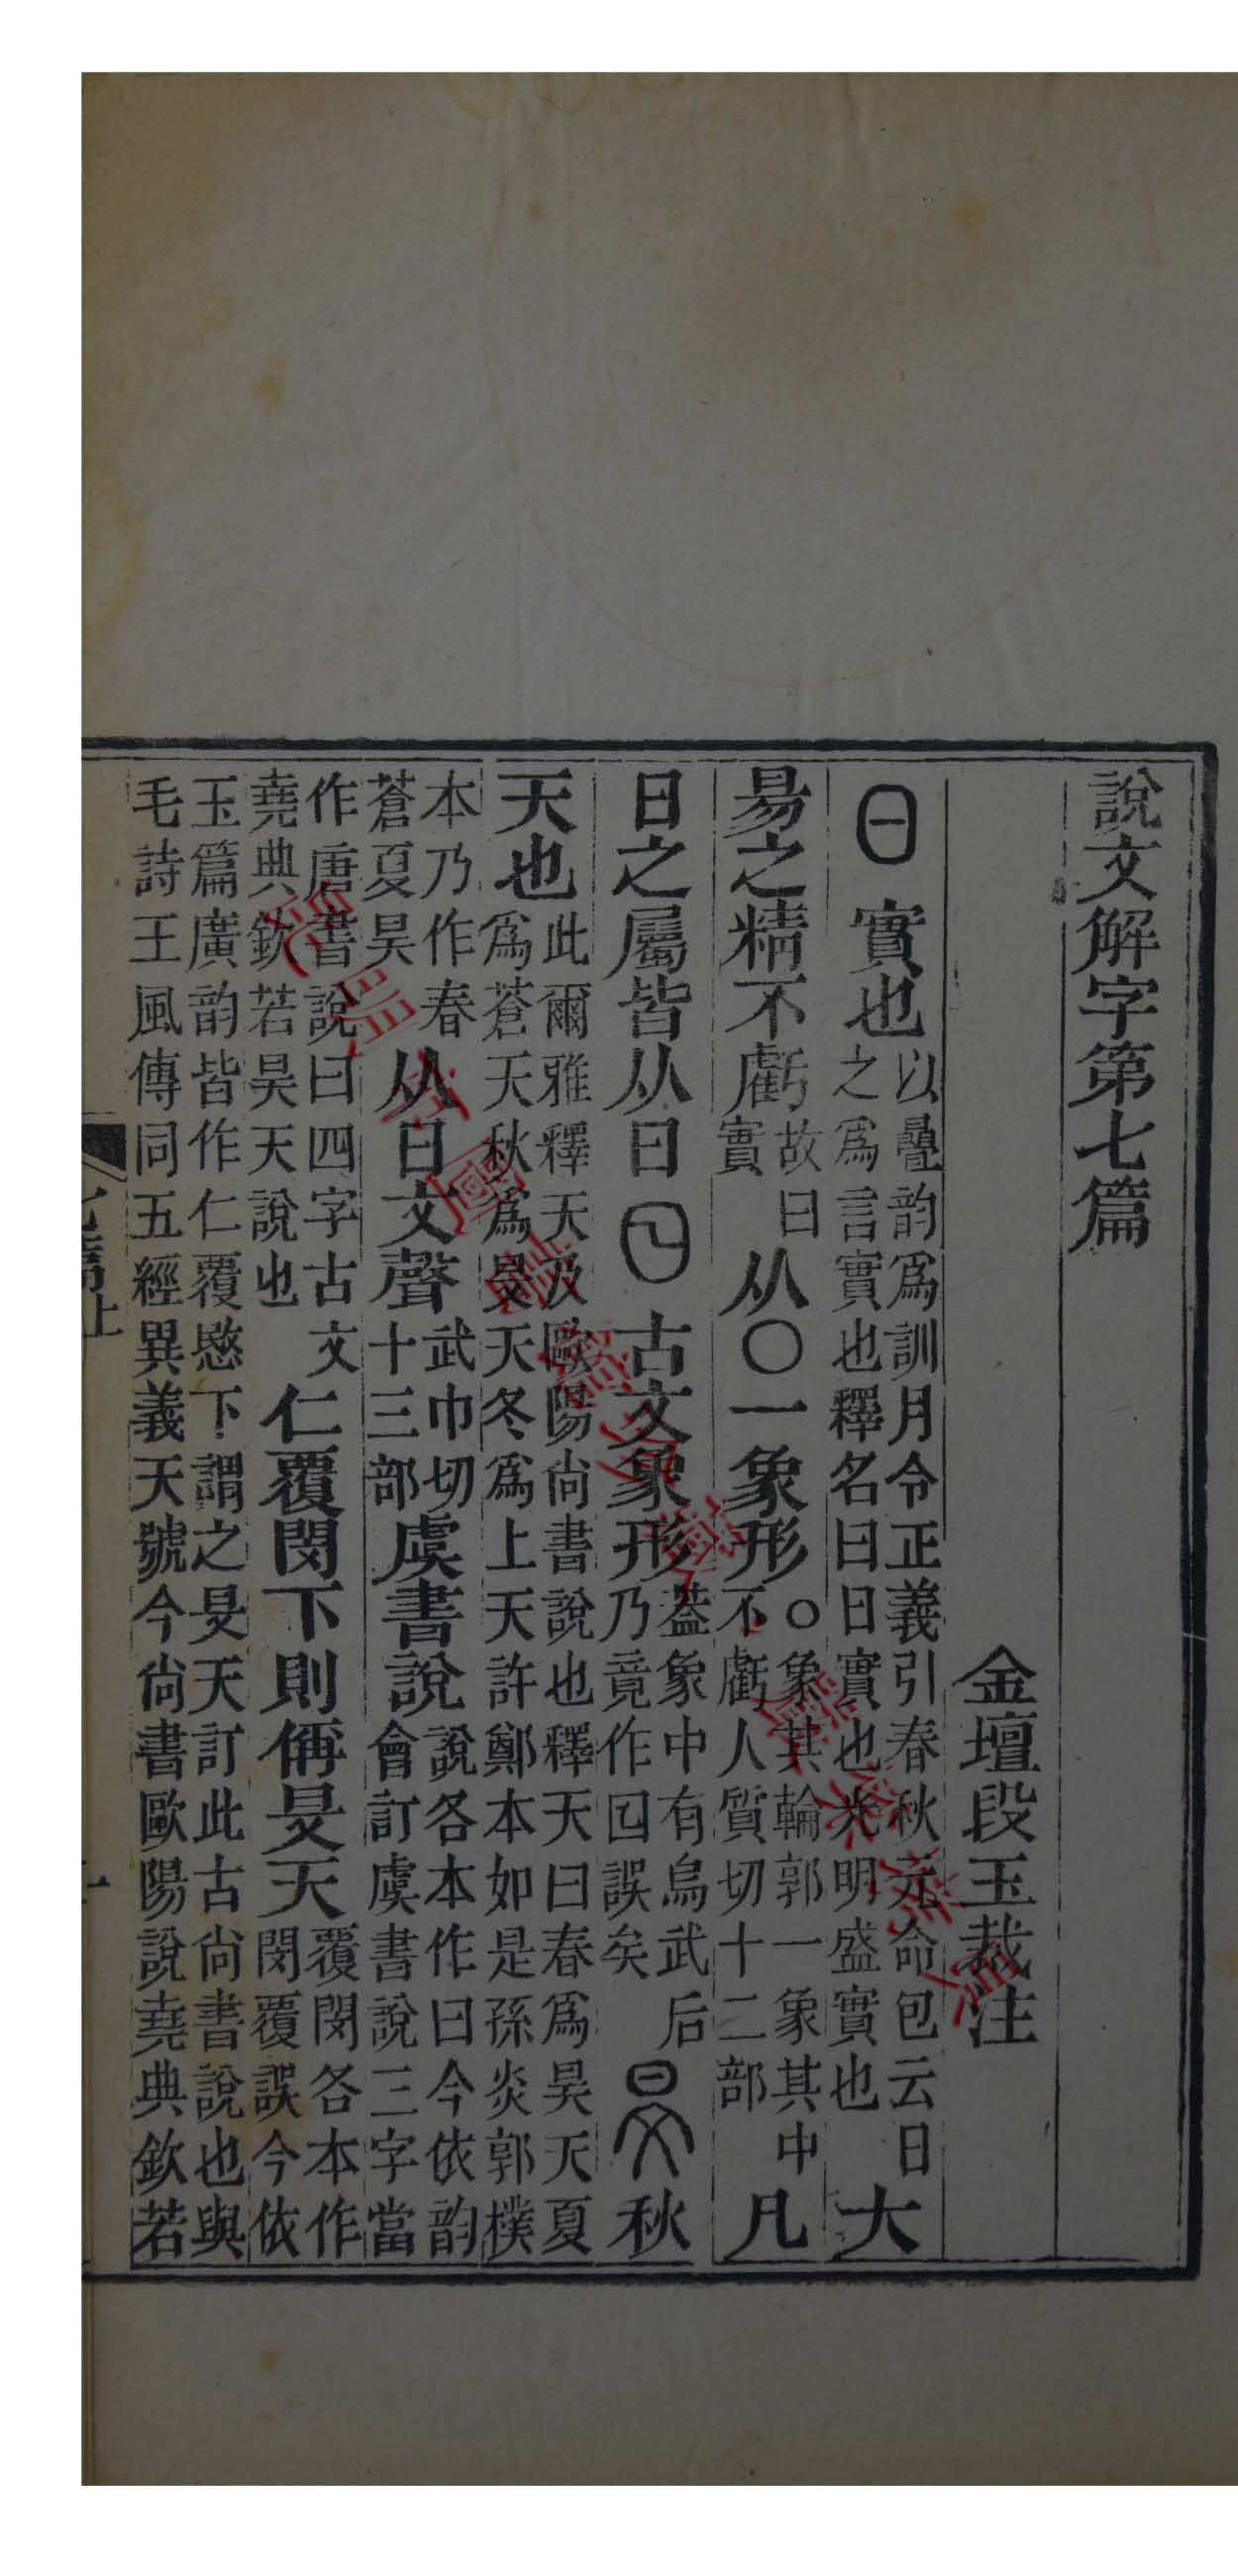 說文解字第七篇
金壇段玉裁注
日實也以疊韵爲訓月令正義引春秋元命包云日之爲言實也釋名曰日實也光明盛實也大
昜之精不虧故曰實从〇一象形〇象其輪郭一象其中不虧人質切十二部凡
日之屬皆从日𡆠古文象形葢象中有烏武后乃竟作囸誤矣旻秋
天也此爾雅釋天及歐陽尚書說也釋天曰春爲昊天夏爲蒼天秋爲旻天冬爲上天許鄭本如是孫炎郭樸
本乃作春蒼夏昊从日文聲武巾切十三部虞書說說各本作曰今依韵會訂虞書說三字當
作唐書說曰四字古文堯典欽若昊天說也仁覆閔下則偁旻天覆閔各本作閔覆誤今依
玉篇廣韵皆作仁覆愍下謂之旻天訂此古尚書說也與毛詩王風傳同五經異義天號今尚書歐陽說堯典欽若
七篇上 一